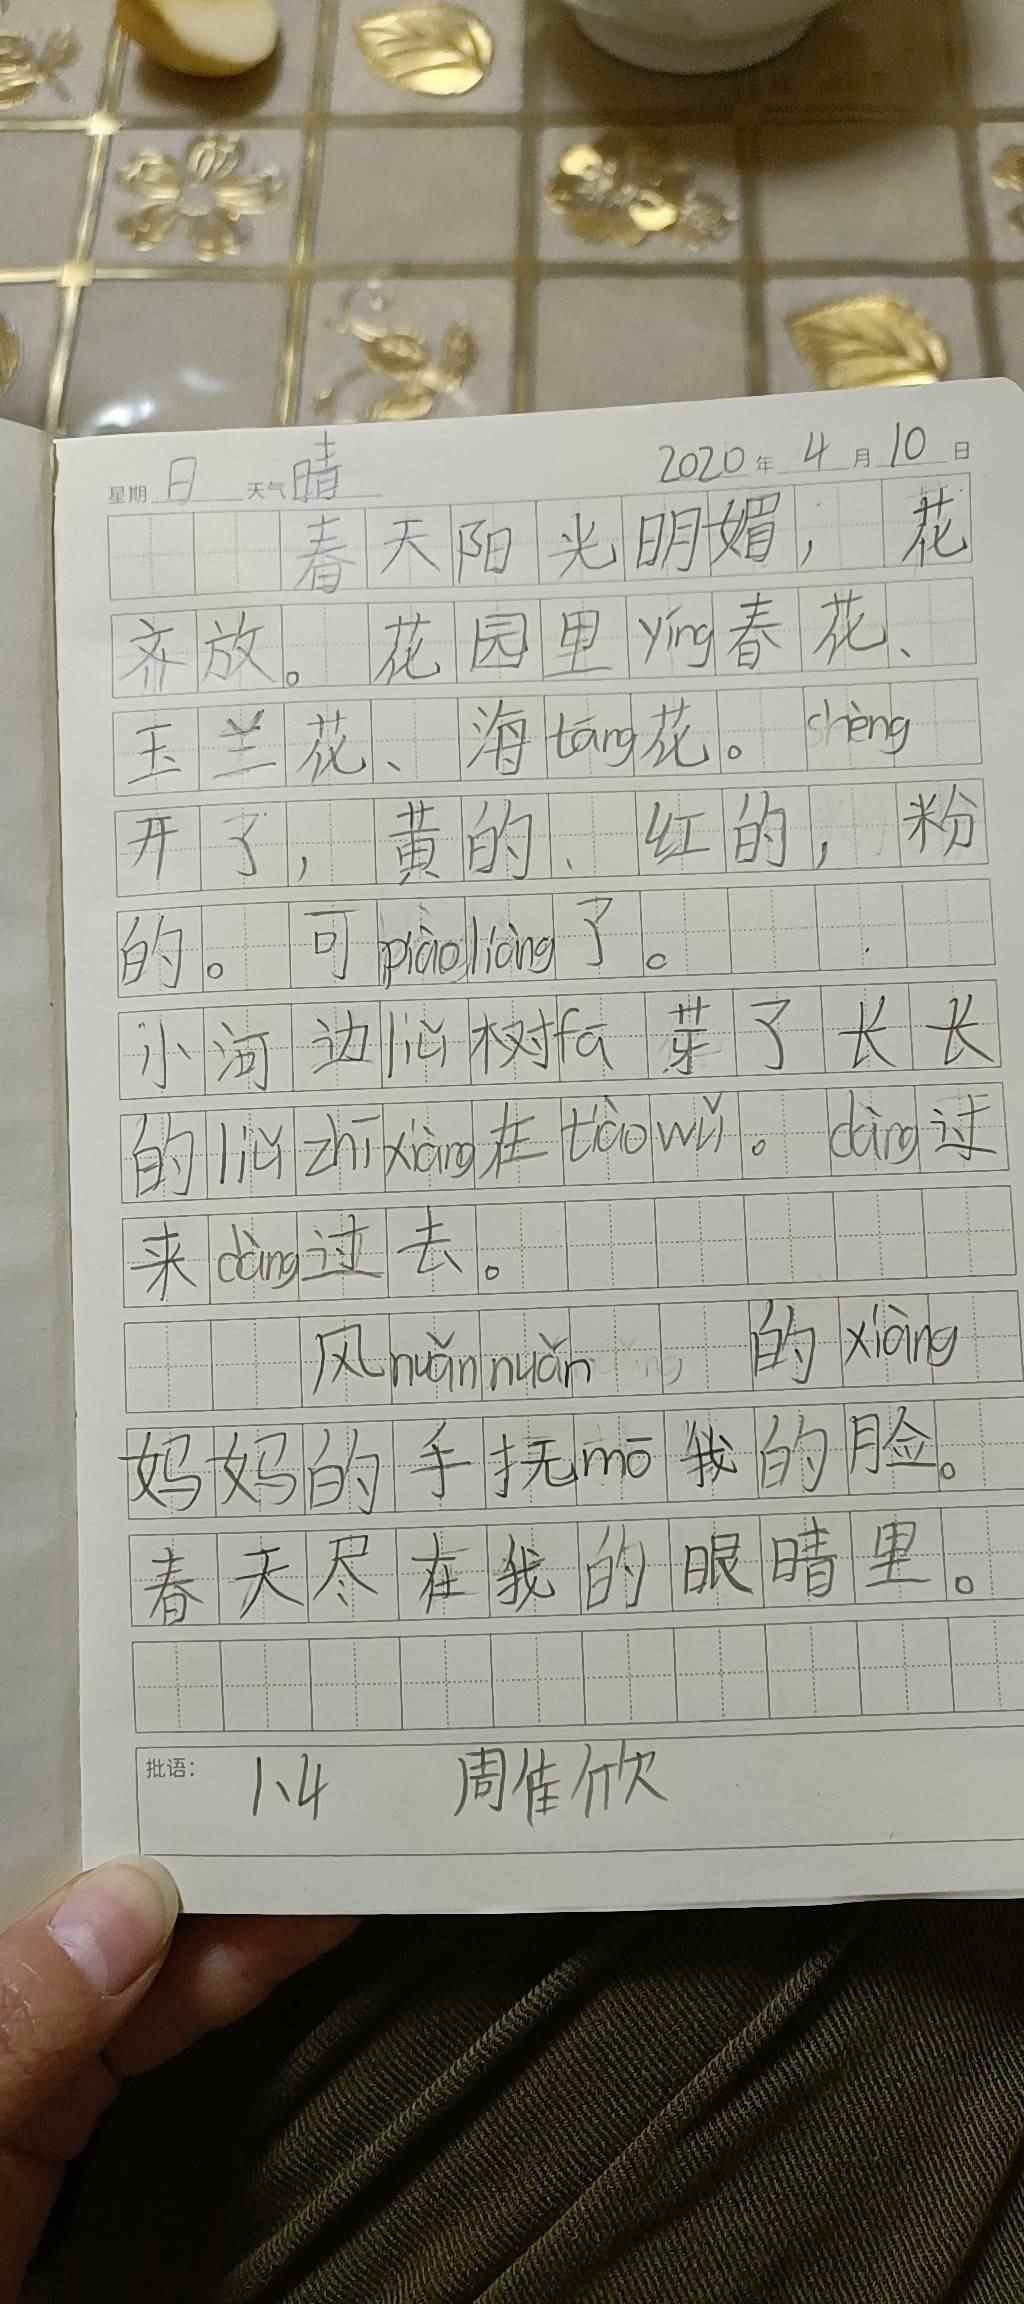 星期 日 天气 晴 2020 年 4 月 10 日
春天阳光明媚，花
齐放。花园里yíng春花、
玉兰花、海táng花。shèng
开了，黄的、红的，粉
的。可piàoliàng了。
小河边liǔ树fā芽了长长
的liǔzhīxiàng在tiàowǔ。dàng过
来dàng过去。
风nuǎnnuǎn的xiàng
妈妈的手抚mō我的脸。
春天尽在我的眼晴里。
批语： 1、4 周佳欣